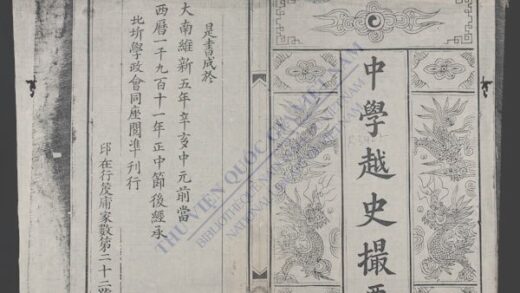 中學越史撮
是書成於
大南維新五年辛亥中元前當
西曆一千九百十一年正中節後經承
北圻學政會同座閱準刊行
印在行茂庸家數第二十二號
THƯ VIỆN QUỐC GIA VIỆT NAM
BIBLIOTHÈQUE NATIONALE DU VIETNAM
NATIONAL LIBRARY OF VIETNAM